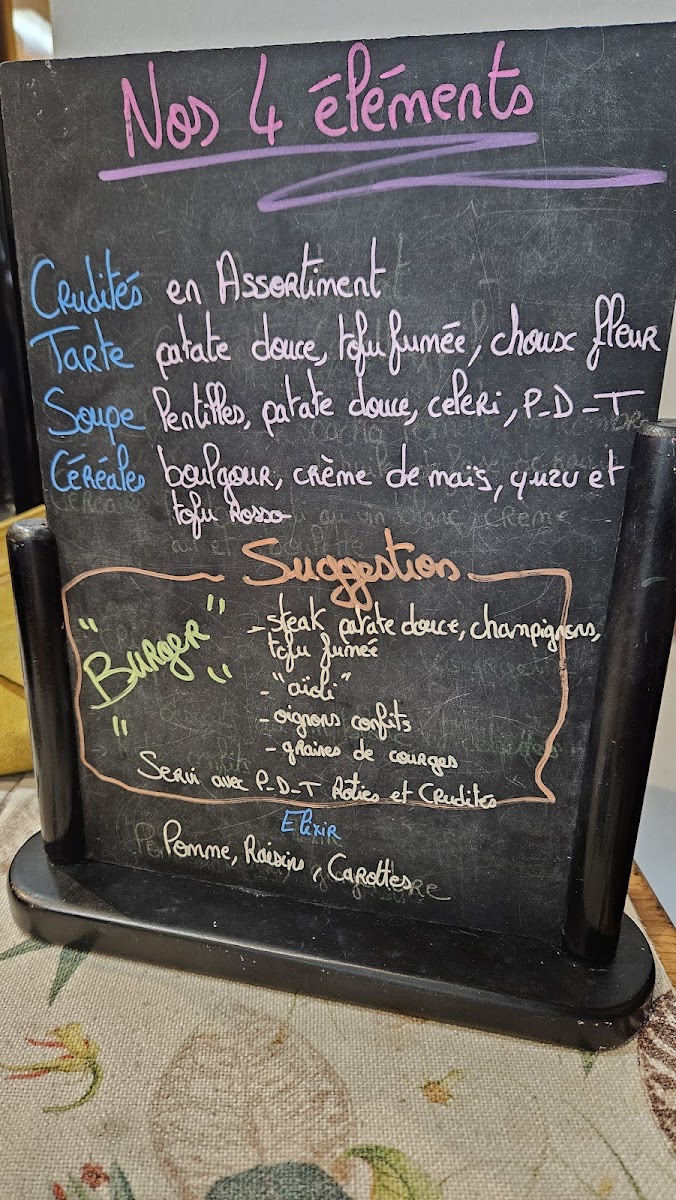 Nos 4 éléments
Crudités en Assortiment
Tarte patate douce, tofu fumée, choux fleur
Soupe lentilles, patate douce, celeri, P-D-T
Céréales boulgour, crème de maïs, yuzu et
tofu Rosso
Suggestion
"Burger"
- steak patate douce, champignons,
tofu fumée
- "aïoli"
- oignons confits
- graines de courges
Servi avec P-D-T Roties et Crudités
Elixir
Pomme, Raisin, Carottes